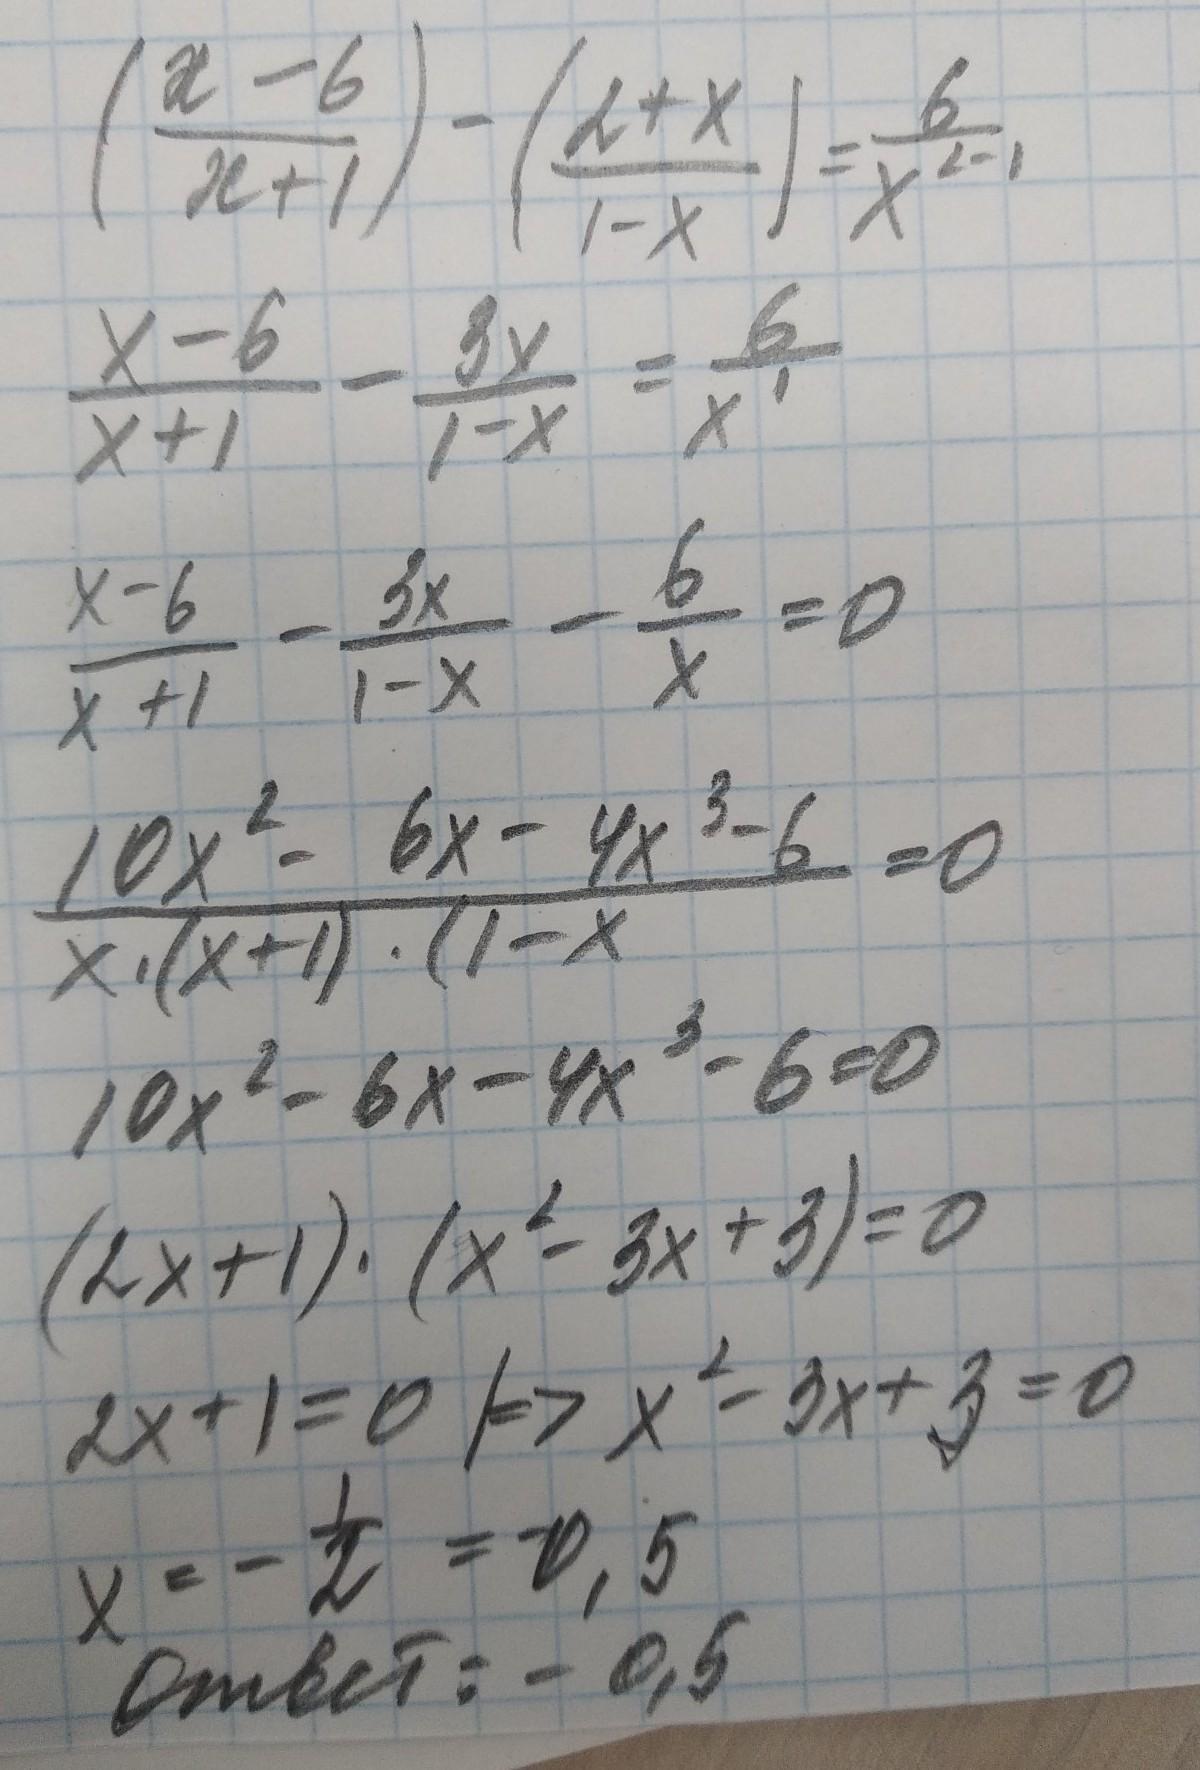 (x-6/x+1) - (2+x/1-x) = 6/x²⁻¹
x-6/x+1 - 3x/1-x = 6/x¹
x-6/x+1 - 3x/1-x - 6/x = 0
10x² - 6x - 4x³ - 6/x·(x+1)·(1-x = 0
10x² - 6x - 4x³ - 6 = 0
(2x+1)·(x² - 3x + 3) = 0
2x+1=0 |=> x² - 3x + 3 = 0
x = - 1/2 = -0,5
Ответ: - 0,5